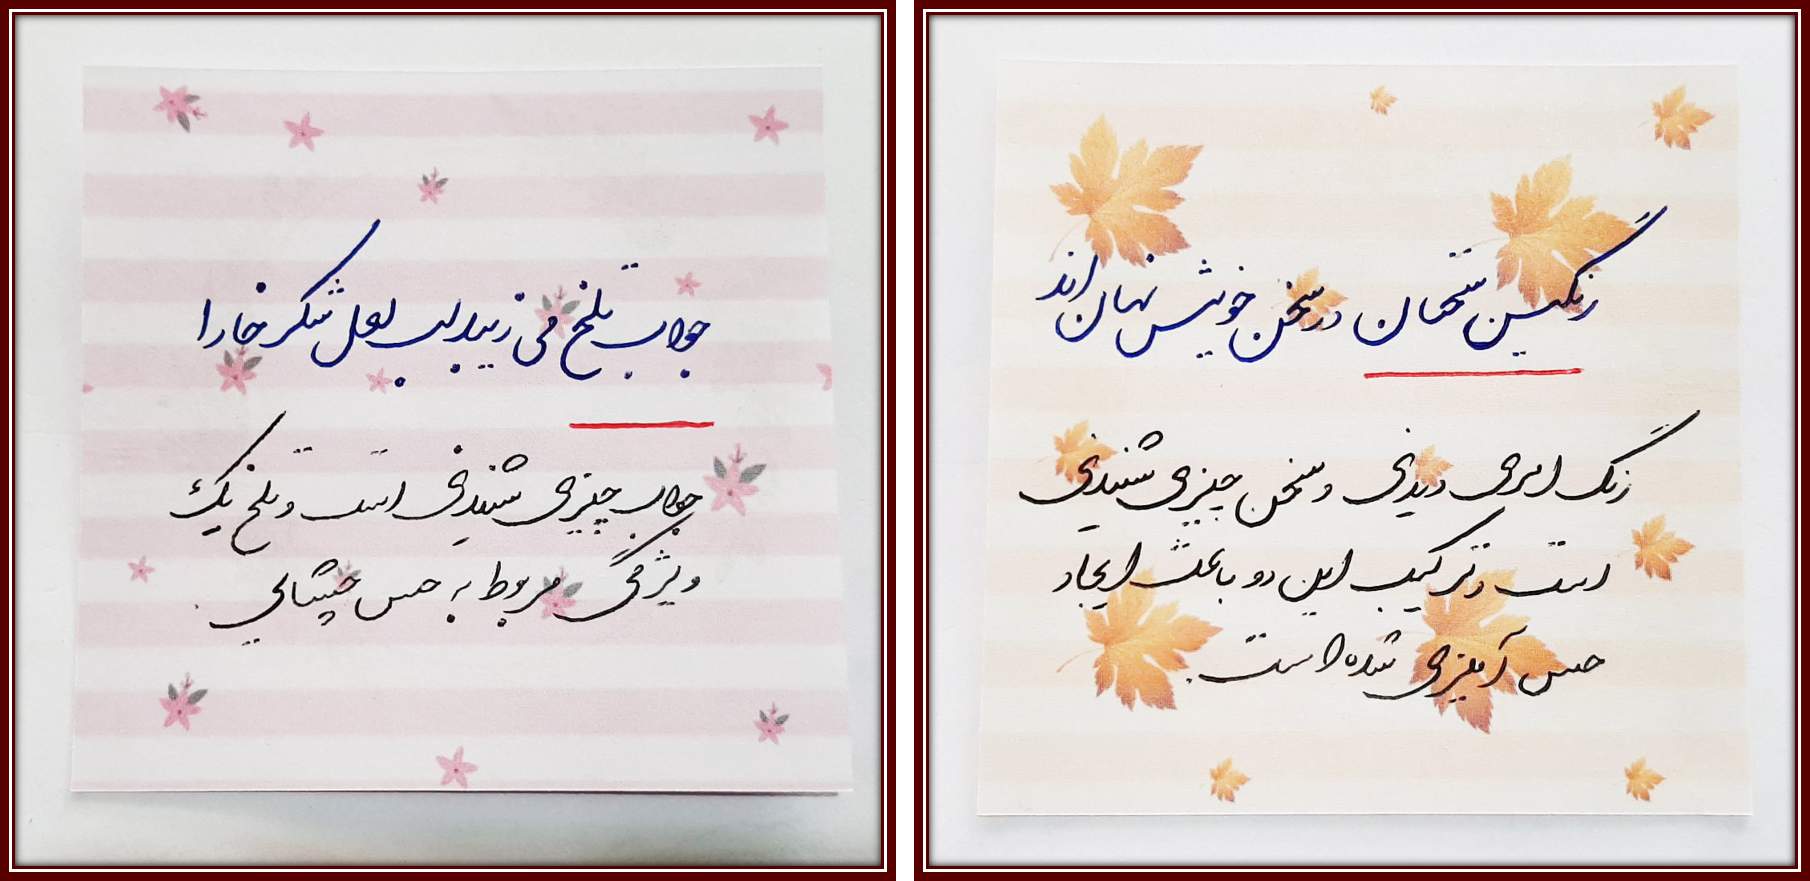 جواب تلخ می زیبد لب لعل شکرخا را
جواب چیزی شنیدنی است و تلخ یک
ویژگی مربوط به حس چشایی .
رنگین سخنان در سخن خویش نهان اند
رنگ امری دیدنی و سخن چیزی شنیدنی
است و ترکیب این دو باعث ایجاد
حس آمیزی شده است .